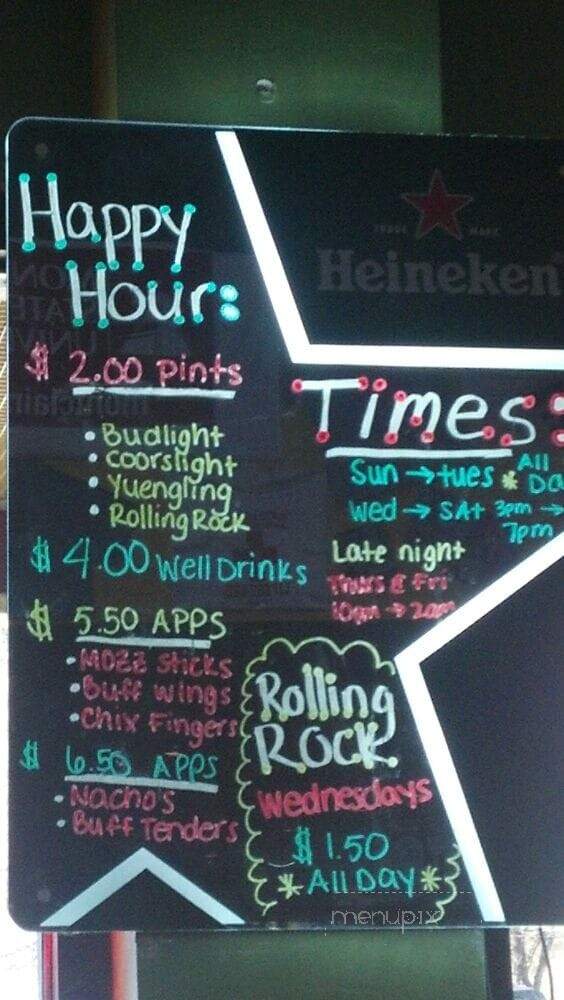 Happy
Hour:
$ 2.00 Pints
• Budlight
• Coorslight
• Yuengling
• Rolling Rock
$ 4.00 Well Drinks
$ 5.50 APPS
• Mozz Sticks
• Buff wings
• Chix Fingers
$ 6.50 APPS
• Nacho's
• Buff Tenders
TRADE MARK
Heineken
Times:
Sun → tues * All
Da
Wed → SAt 3pm →
7pm
Late night
Thurs & Fri
10pm → 2am
Rolling
Rock
Wednesdays
$ 1.50
* All DAY *
menupix